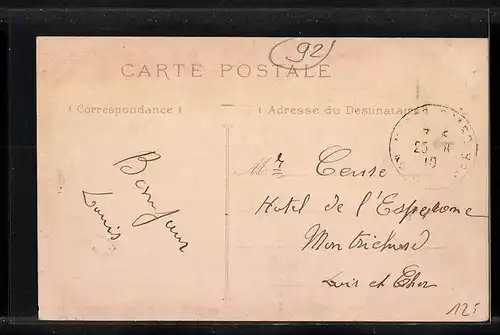 92
CARTE POSTALE
Correspondance
Adresse du Destinataire
7 S
25 8
10
Bonjour
Louis
Mr Cense
Hotel de l'Esperance
Montrichard
Loir et Cher